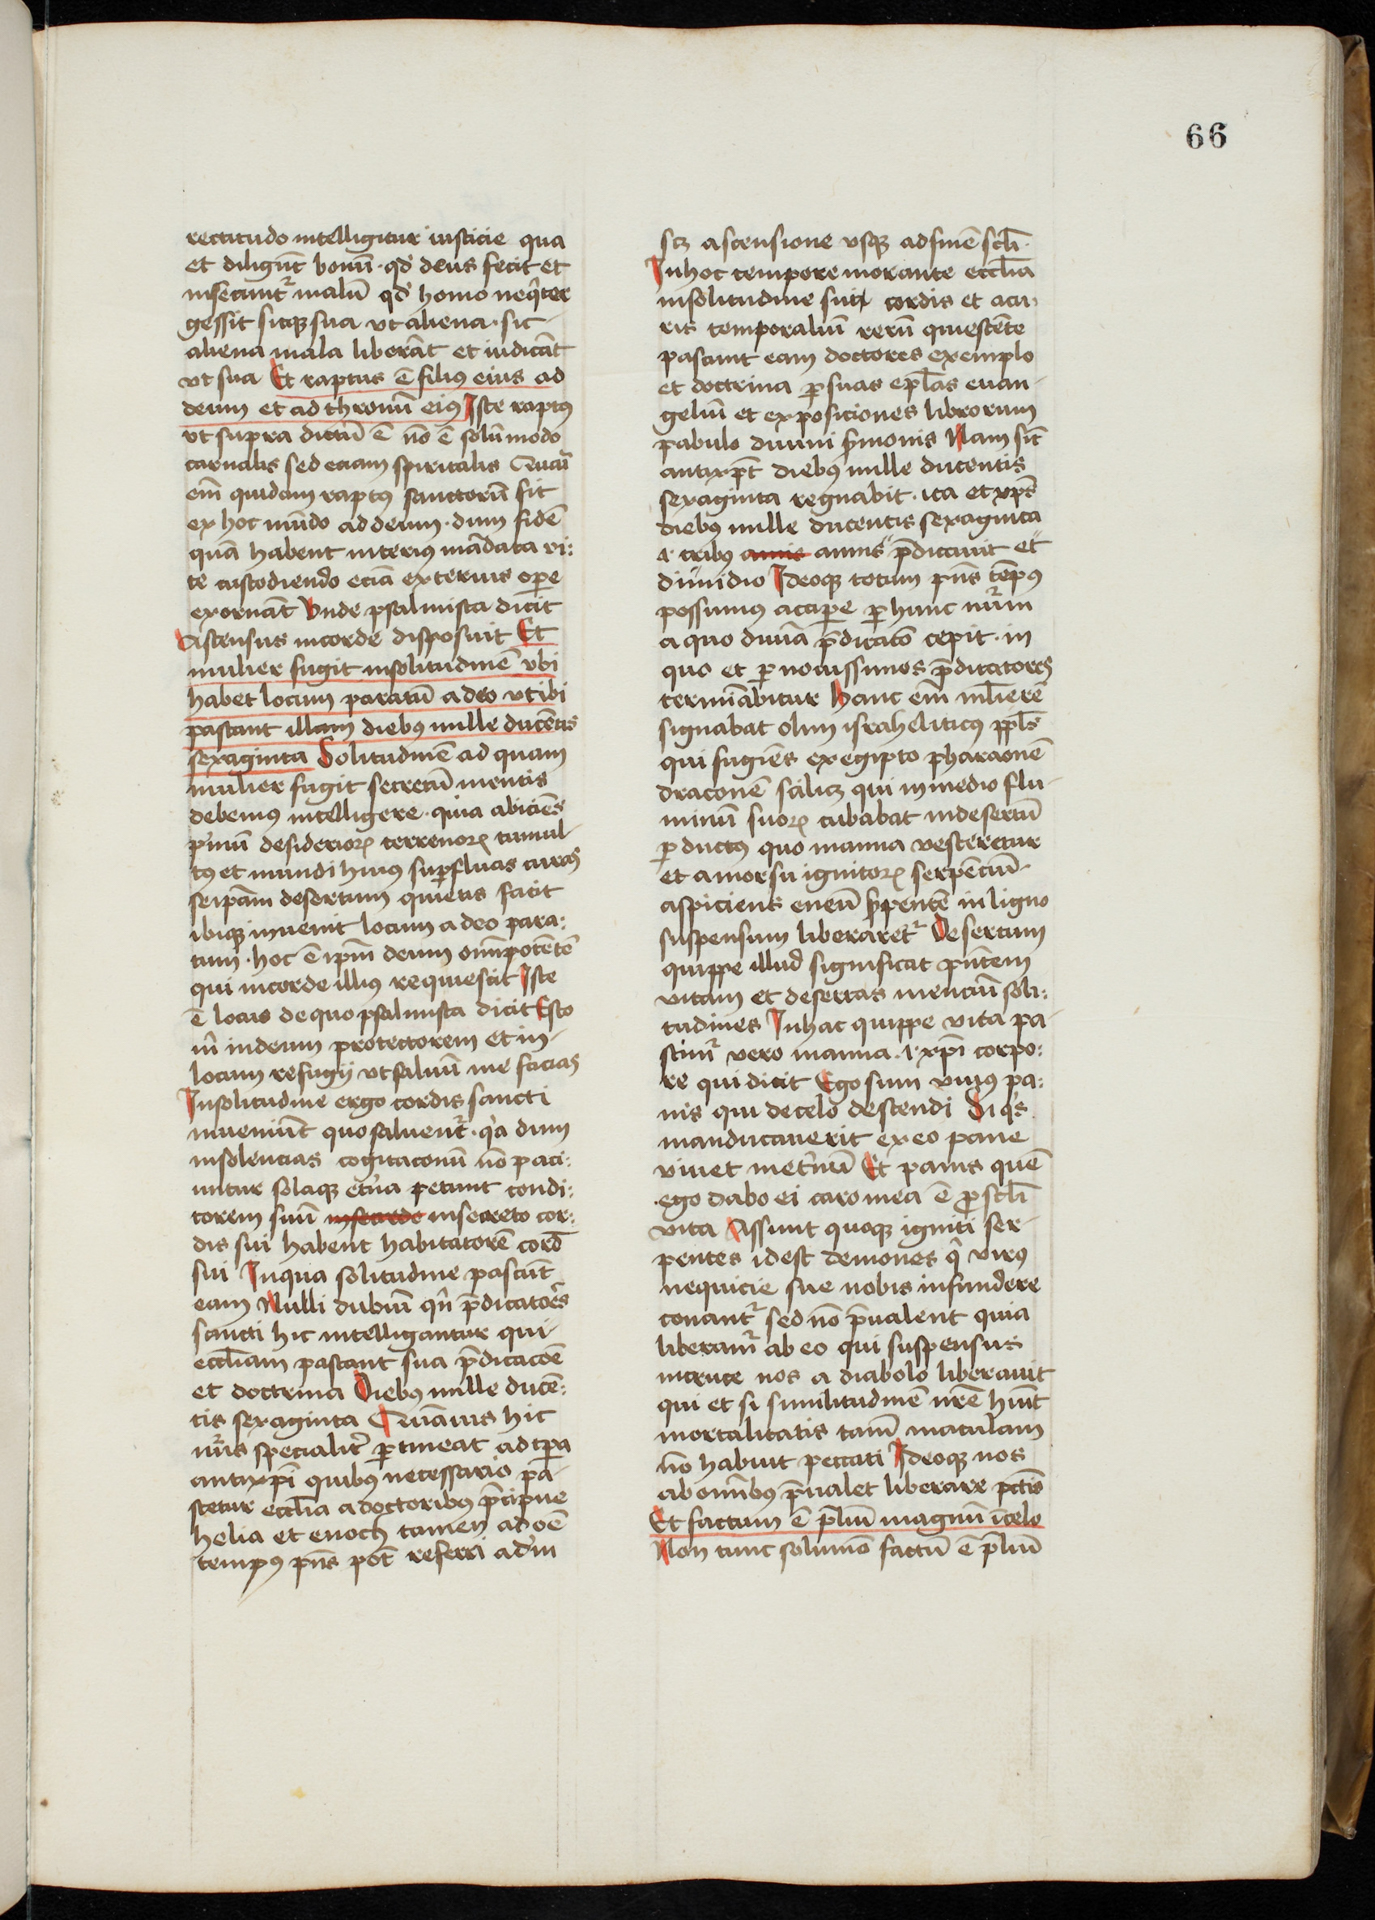 66
rectitudo intelligitur iusticie qua
et diligūt bonū · qd' deus fecit et
insecunt᷑ malū qd' homo neq̇ter
gessit sicq; sua vt aliena · sic
aliena mala liberāt et iudicāt
vt sua Et raptus ē filius eius ad
deum et ad thronū eiꝰ Iste raptꝰ
vt supra dictū ē nō ē solūmodo
carnalis sed eciam spiritalis
em̄ quidam raptꝰ sanctorū fit
ex hoc mūdo ad deum · dum fidē
quā habent interiꝰ mādata ri-
te custodiendo eciā exterius oꝑe
exornāt Vnde psalmista dicit
Ascensus in corde disposuit Et
mulier fugit in solitudinē vbi
habet locum paratū a deo vt ibi
pascant illam diebꝰ mille ducētis
sexaginta Solitudinē ad quam
mulier fugit secretū mentis
debemꝰ intelligere · quia abiciēs
desiderioꝝ terrenoꝝ tumul-
tꝰ et mundi huiꝰ suꝑfluas curas
seip̄am desertum quietis facit
ibiq; inuenit locum a deo para-
tum · hoc ē ip̄m deum om̄ipotētē
qui in corde illiꝰ requiescit Iste
ē locus de quo psalmista dicit Esto
m̄ in deum protectorem et in
locum refugij vt saluū me facias
In solitudine ergo cordis sancti
inueniūt quo saluent᷑ · q̇a dum
insolencias cogitaconū nō paci-
untur solaq; et̄na petunt condi-
torem suū insecorde in secreto cor-
dis sui habent habitatorē cord̄
sui In qua solitudine pascūt
eam Nulli dubiū qn̄ p̄dicatores
sancti hic intelligantur qui
eccl̄iam pascant sua p̄dicacōe
et doctrina Diebꝰ mille ducē-
tis sexaginta Quāuis hic
nūs specialit̄ ꝑtineat ad tꝑa
antixp̄i quibꝰ necessario pa-
scetur eccl̄ia a doctoribꝰ p̄cipue
helia et enoch tamen ad oē
tempꝰ pn̄s pōt referri a dn̄i
scꝫ ascensione vsq; ad finē scl̄i ·
In hoc tempore morante eccl̄ia
in solitudine sui cordis et a cu-
ris temporaliū rerū quiescēte
pascunt eam doctores exemplo
et doctrina ꝑ suas epl̄as euan-
geliū et exposiciones librorum
pabulo diuini s̄monis Nam sic̄
antixp̄c̄ diebꝰ mille ducentis
sexaginta regnabit · ita et xp̄s
diebꝰ mille ducentis sexaginta
.i. tribꝰ annis annis p̄dicauit et
dimidio Ideoq; totum pn̄s tēpꝰ
possumus acciꝑe ꝑ hunc nūm
a quo diuīa p̄dicatō cepit · in
quo et ꝑ nouissimos p̄dicatores
termīabitur Hanc em̄ mulierē
signabat olim israheliticus ppl̄s
qui fugiēs ex egipto pharaonē
draconē scilicꝫ qui in medio flu-
minū suoꝝ cubabat in desertū
ꝑductꝰ quo manna vesceretur
et a morsu ignitoꝝ serpēciū
aspiciens eneū s̄pentē in ligno
suspensum liberaret᷑ Desertum
quippe illud significat pn̄tem
vitam et desertas menciū soli-
tudines In hac quippe vita pa-
scim᷑ vero manna .i. xp̄i corpo-
re qui dicit Ego sum viuꝰ pa-
nis qui de celo descendi Si q̇s
manducauerit ex eo pane
viuet in et̄nū Et panis quē
ego dabo ei caro mea ē ꝓ scl̄i
vita Assunt quoq; igniti ser-
pentes id est demones q̇ virꝰ
nequicie sue nobis infundere
conant᷑ sed nō p̄ualent quia
liberam᷑ ab eo qui suspensus
in cruce nos a diabolo liberauit
qui et si similitudinē nr̄e hūit
mortalitatis tam̄ maculam
nō habuit peccati Ideoq; nos
ab om̄ibꝰ p̄ualet liberare pc̄tis
Et factum ē p̄liū magnū ī celo
Non tunc solūmō factū ē p̄liū